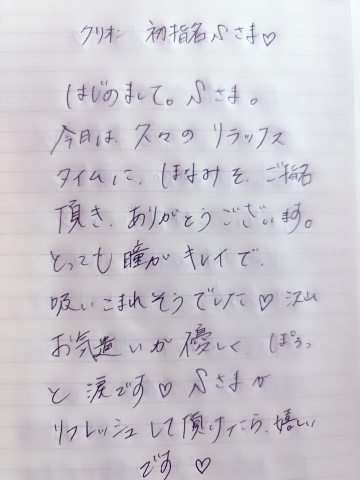 クリオン 初指名 Sさま♡
はじめまして。Sさま。
今日は、久々の リラックス
タイムに、ほなみを、ご指名
頂き、ありがとうございます。
とっても瞳が キレイで、
吸いこまれそうでした♡ 沢山
お気遣いが優しく、ぽろっ
と 涙です♡ Sさまが
リフレッシュして頂けたら、嬉しい
です♡